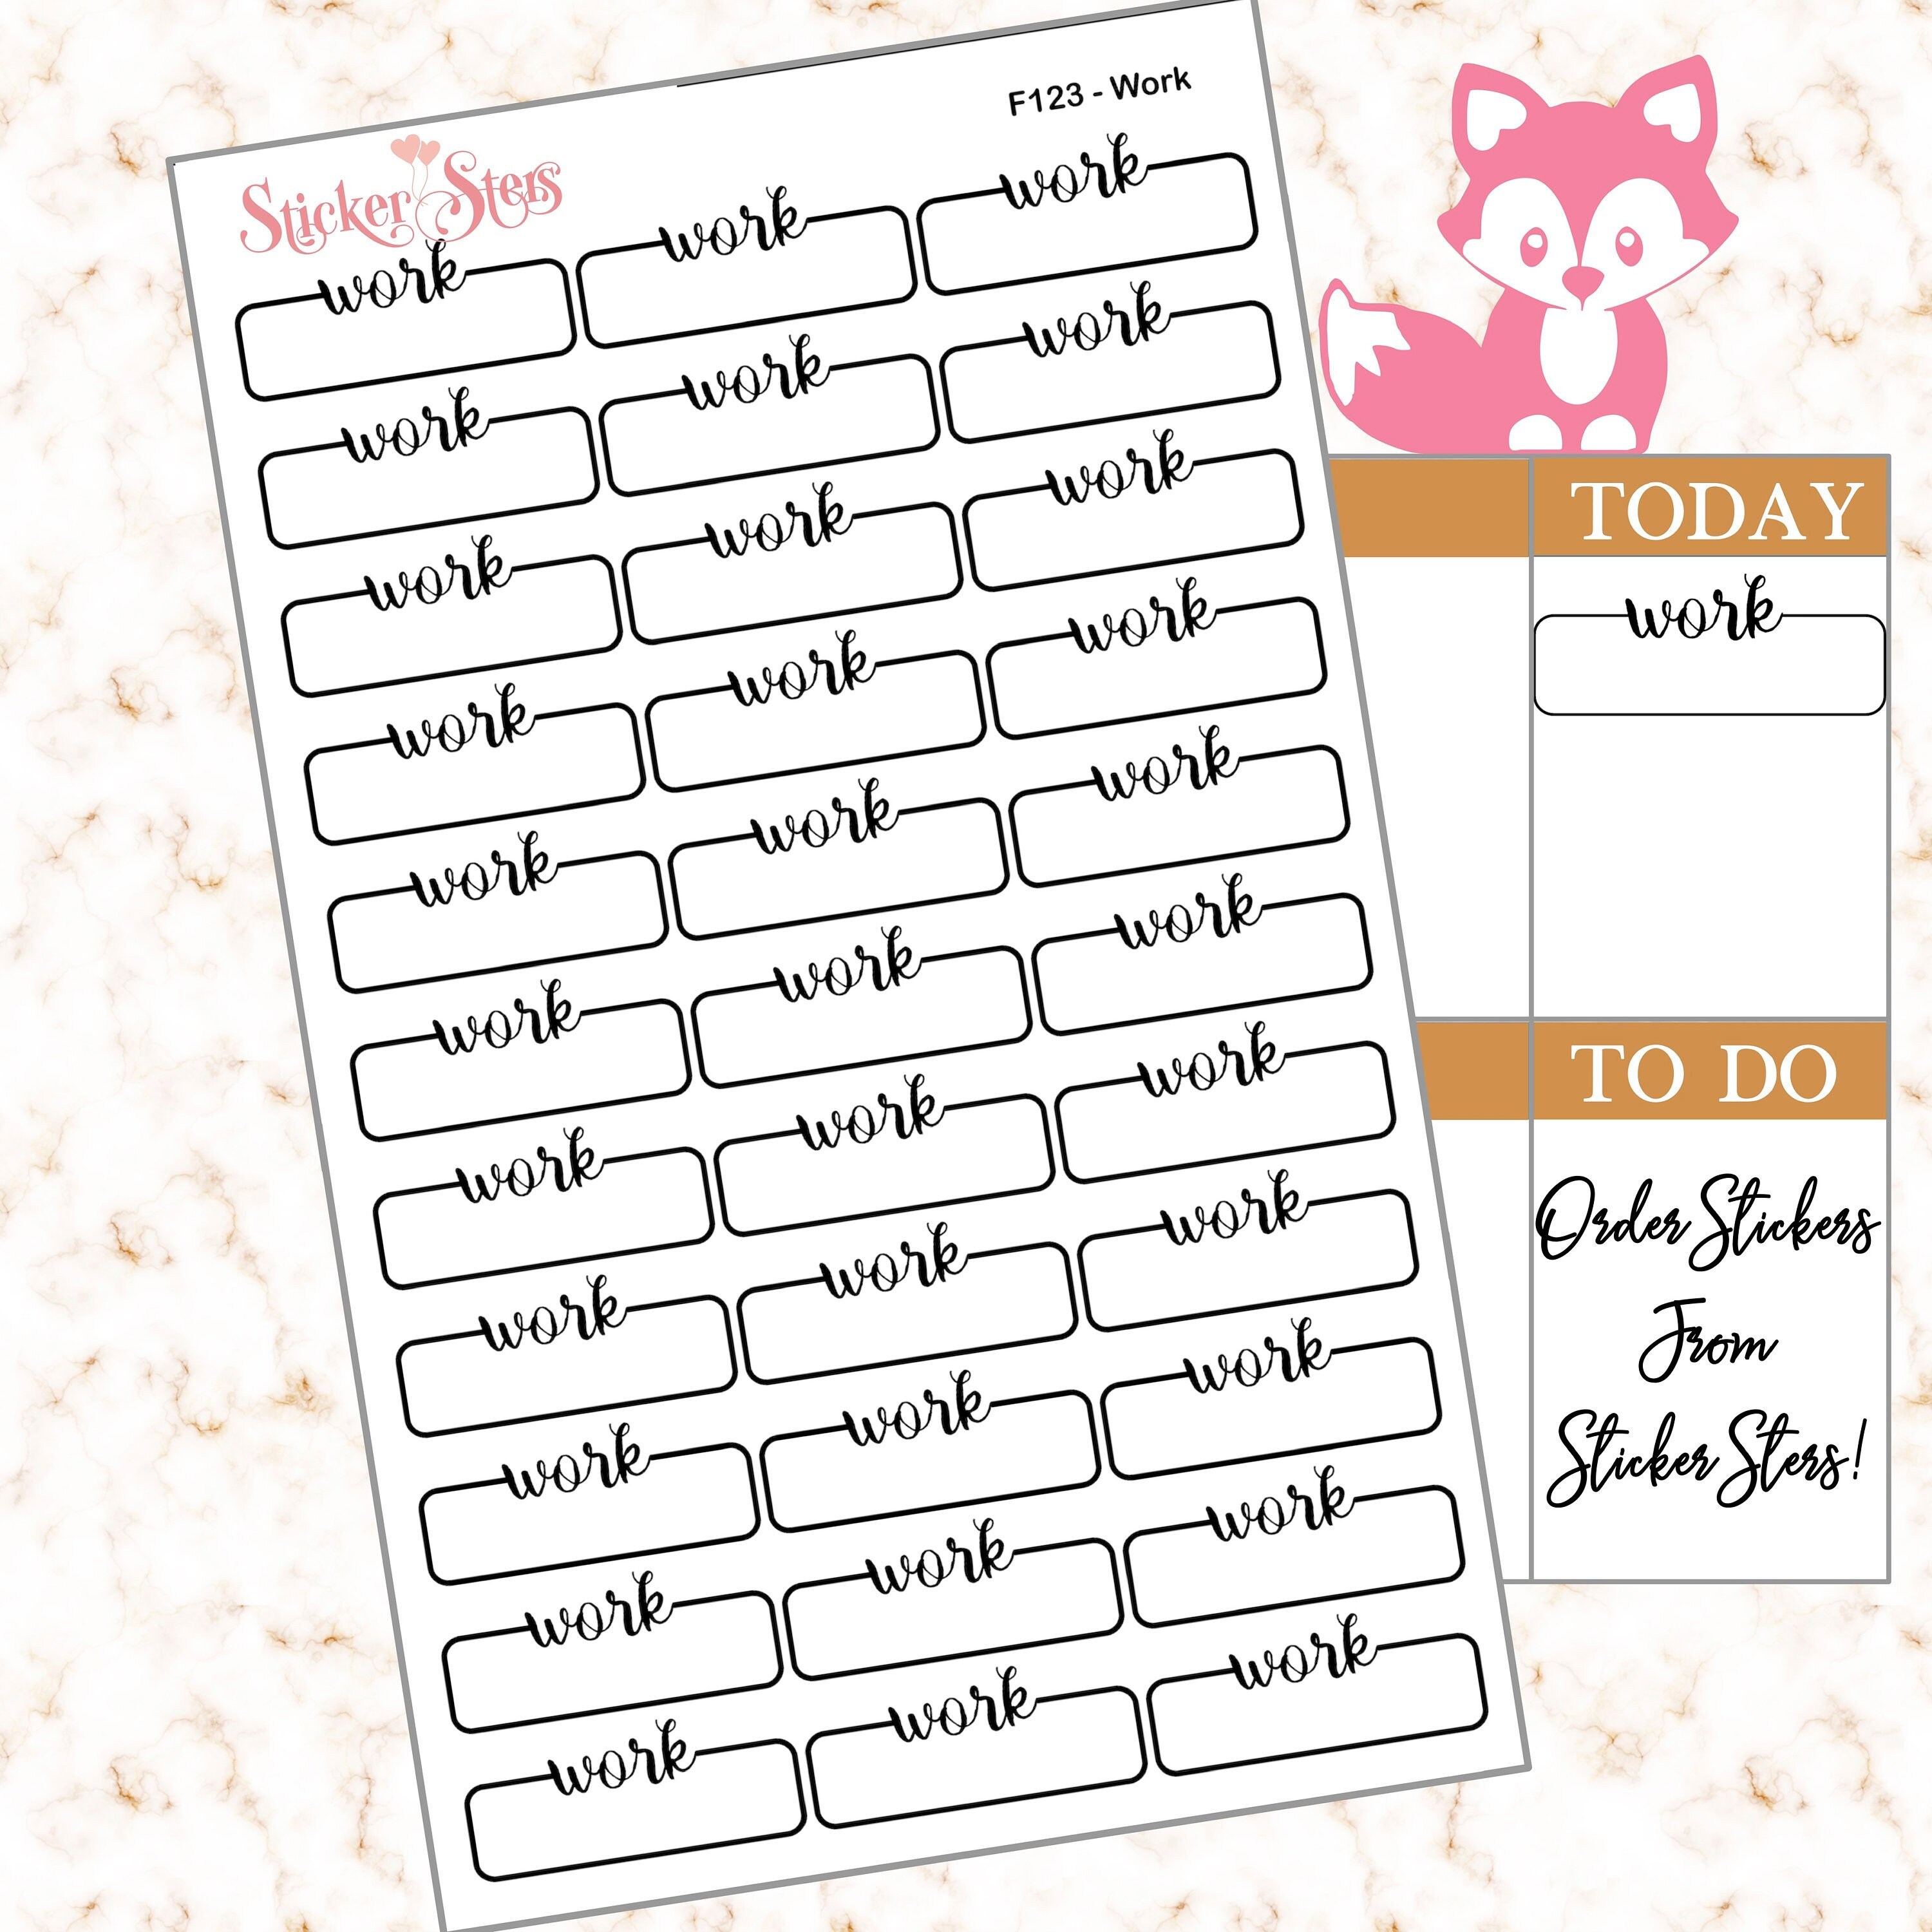 F123 - Work
Sticker Sters
work work work
work work work
work work work
work work work
work work work
work work work
work work work
work work work
work work work
work work work
work work work
TODAY
work
TO DO
Order Stickers
From
Sticker Sters!